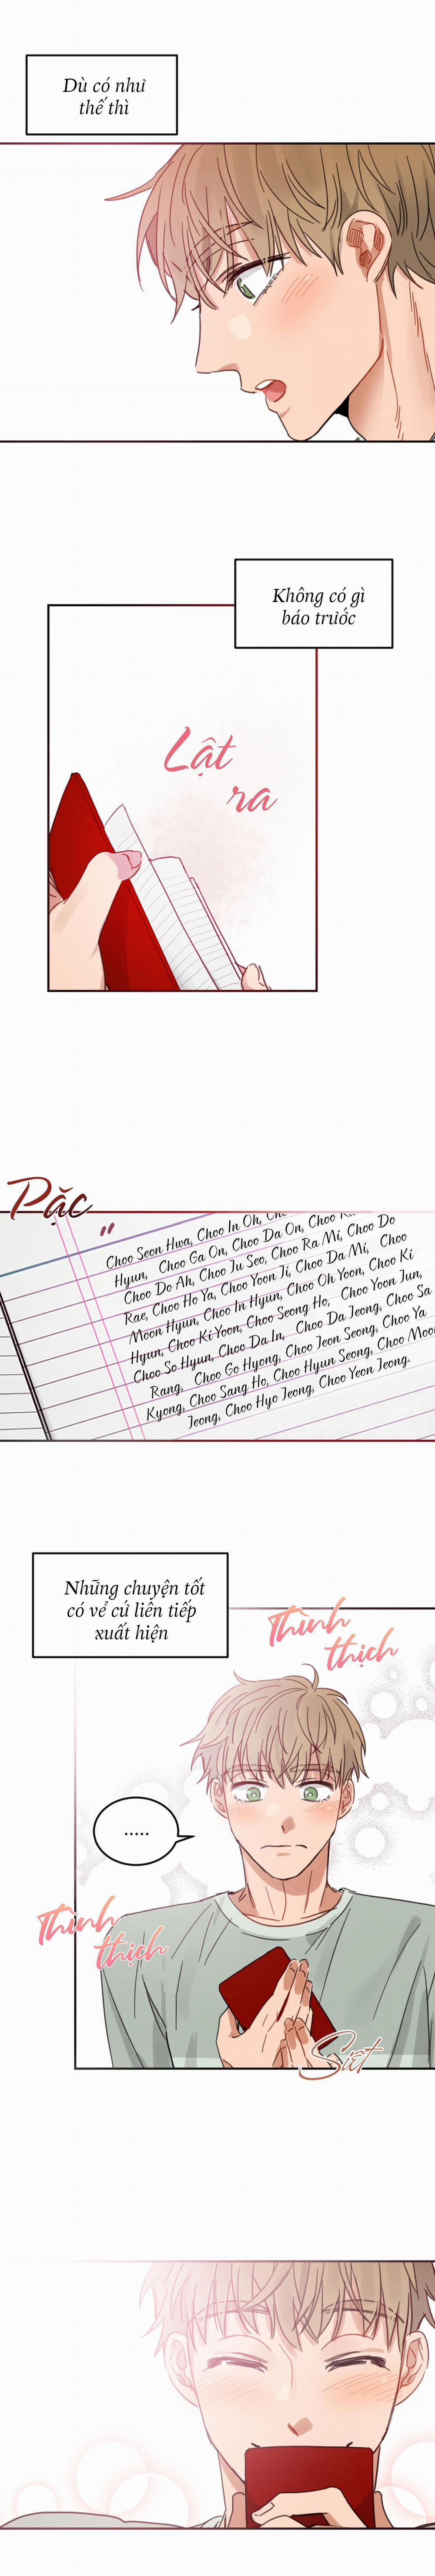 Dù có như
thế thì
Không có gì
báo trước
Lật
ra
Pặc
Choo Seon Hwa, Choo In Oh,
Hyun, Choo Ga On, Choo Da On, Choo
Choo Do Ah, Choo Ju Seo, Choo Ra Mi, Choo Do
Rae, Choo Ho Ya, Choo Yoon Ji, Choo Da Mi, Choo
Moon Hyun, Choo In Hyun, Choo Oh Yoon, Choo Ki
Hyun, Choo Ki Yoon, Choo Seong Ho, Choo Yoon Jun,
Choo So Hyun, Choo Da In, Choo Da Jeong, Choo Sa
Rang, Choo Go Hyong, Choo Jeon Seong, Choo Ya
Kyong, Choo Sang Ho, Choo Hyun Seong, Choo Moon
Jeong, Choo Hyo Jeong, Choo Yeon Jeong.
Những chuyện tốt
có vẻ cứ liên tiếp
xuất hiện
Thình
thịch
.....
Thình
thịch
Siết